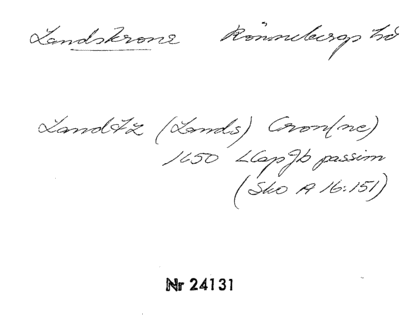 Landskrona Rönnebergs hd
Landtz (Lands) Cron(ne)
1650 LCapJb passim
(Sko A 16:151)
Nr 24131